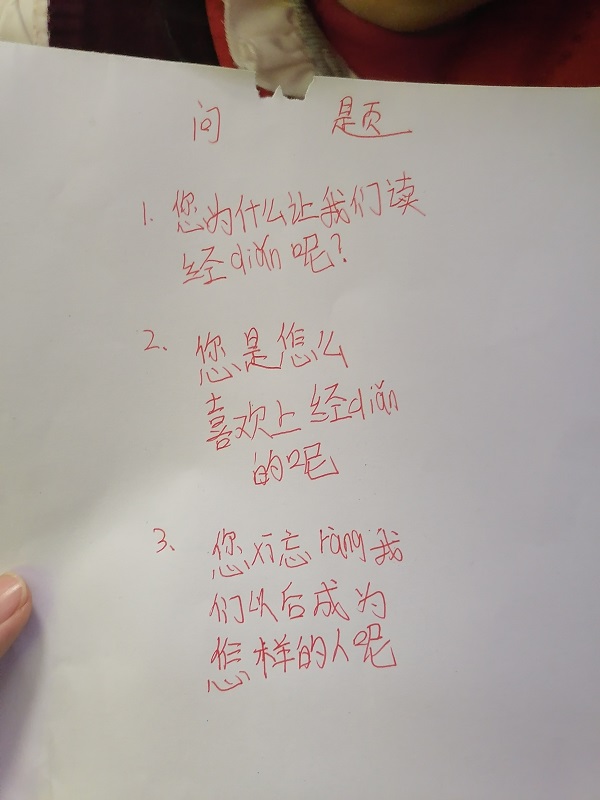 问 题
1. 您为什么让我们读
经diǎn呢?
2、您是怎么
喜欢上经diǎn
的呢
3、您xī忘ràng我
们以后成为
怎样的人呢